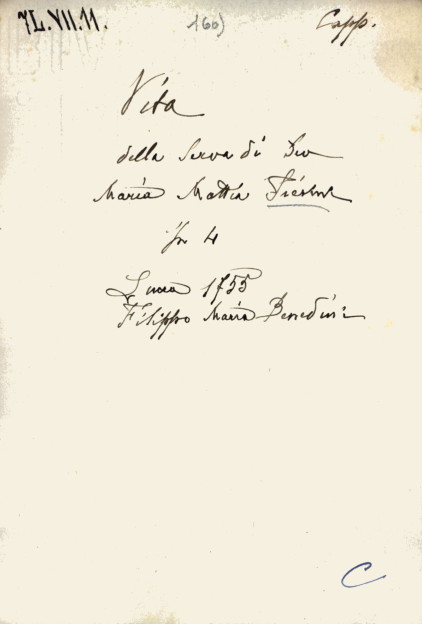 7L.VII.11.
160)
Capp.
Vita
della Serva di Dio
Maria Mattia
In 4
Lucca 1755
Filippo Maria Benedini
C